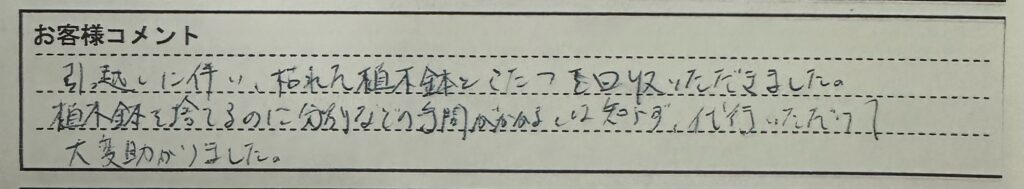 お客様コメント
引っ越しに伴い、枯れた植木鉢とこたつを回収いただきました。
植木鉢を捨てるのに分別などの手間がかかるとは知らず、代行いただけて
大変助かりました。